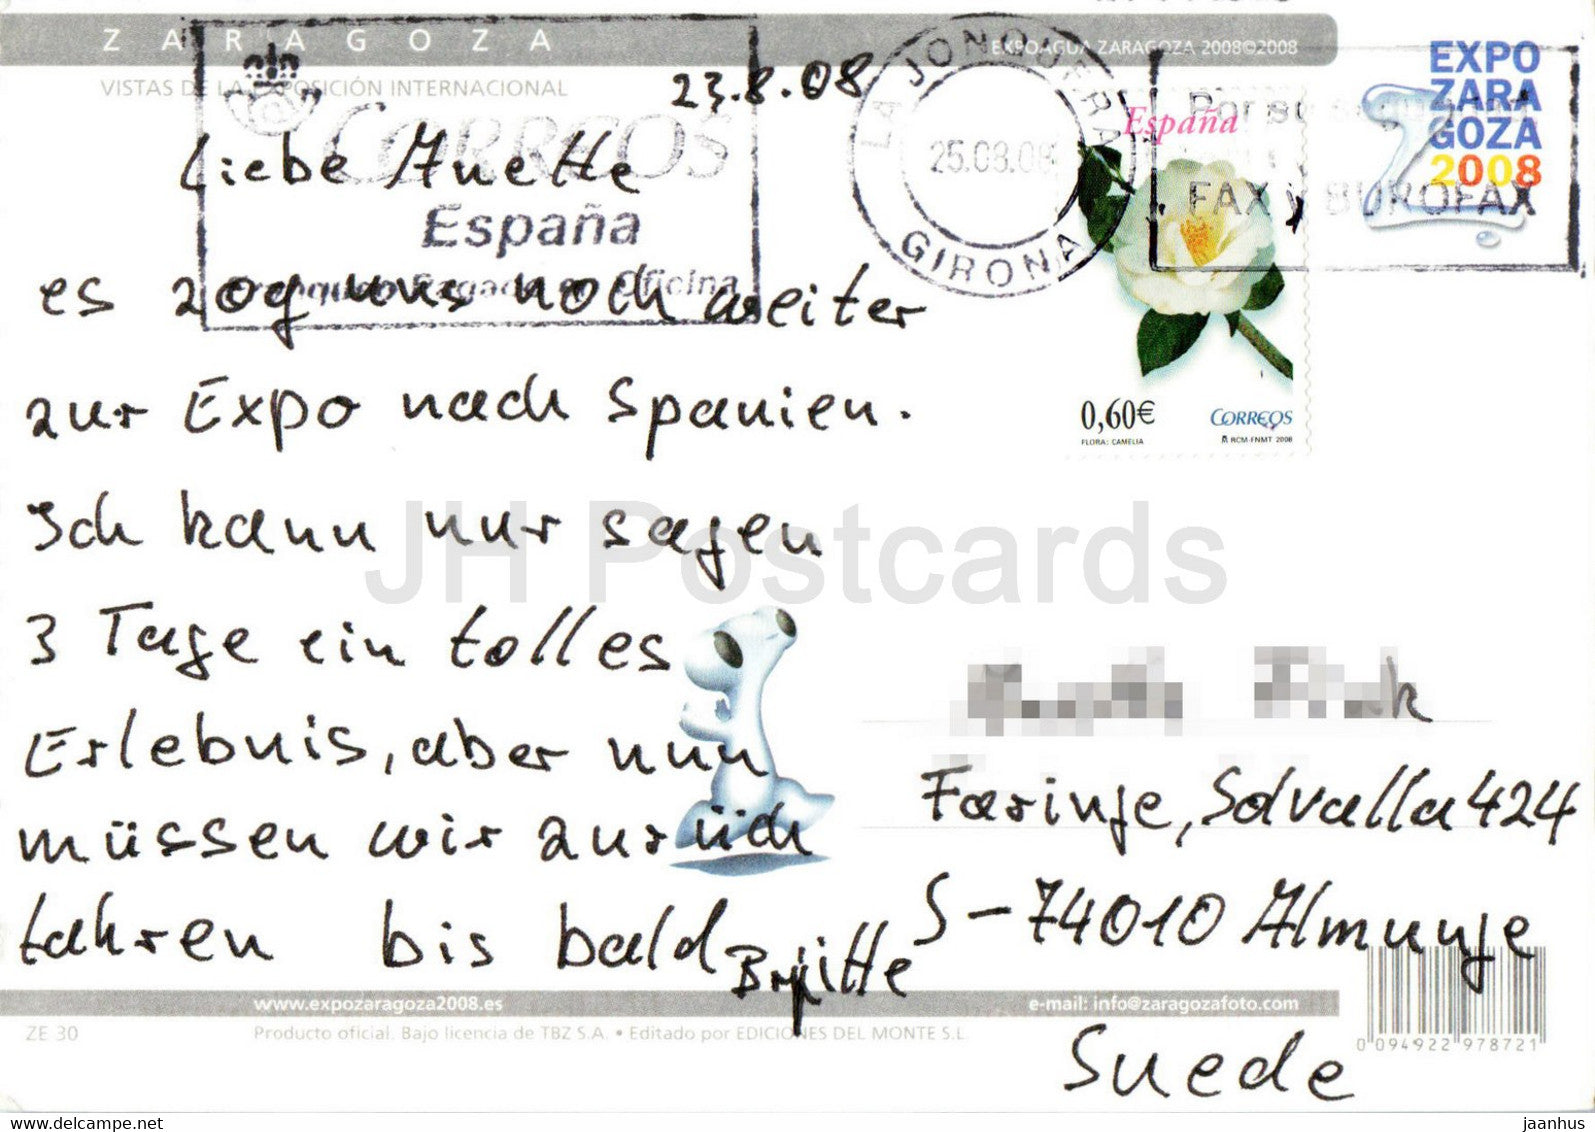 ZARAGOZA
EXPOAGUA ZARAGOZA 2008©2008
VISTAS DE LA EXPOSICIÓN INTERNACIONAL
CORREOS
España
Franqueo Pagado en Oficina
23.8.08
LA JONQUERA
25.08.08
GIRONA
FAX y BUROFAX
España
0,60€
CORREOS
FLORA: CAMELIA
RCM-FNMT 2008
EXPO
ZARA
GOZA
2008
Liebe Anette
es zog uns noch weiter
zur Expo nach Spanien.
Ich kann nur sagen
3 Tage ein tolles
Erlebnis, aber nun
müssen wir zurück
fahren bis bald Brigitte
Faringe, Solvalla 424
S-74010 Almunge
Suede
JH Postcards
www.expozaragoza2008.es
e-mail: info@zaragozafoto.com
ZE 30
Producto oficial. Bajo licencia de TBZ S.A. • Editado por EDICIONES DEL MONTE S.L
0 094922 978721
www.delcampe.net
jaanhus